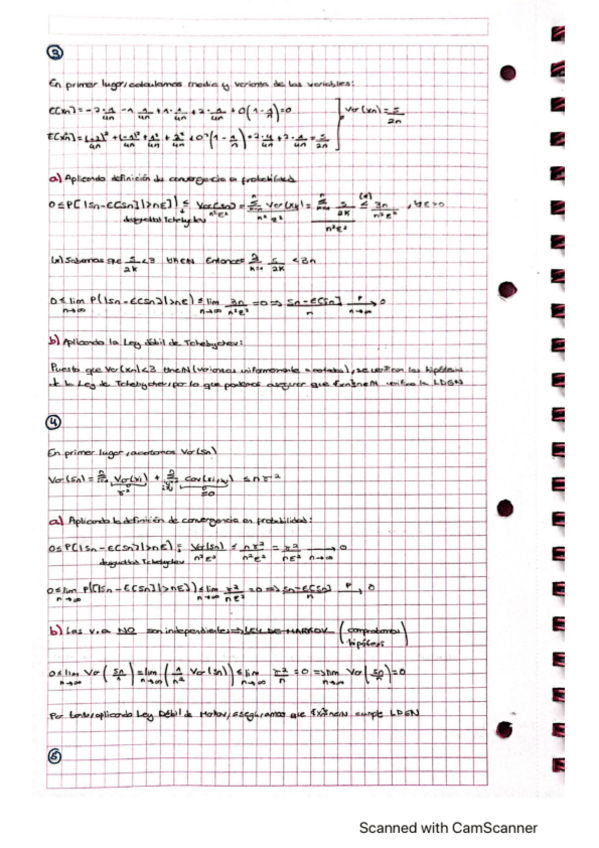 ③
En primer lugar, calculamos media y varianza de las variables:
E[Xn] = -2·1/4n -1·1/4n +1·1/4n +2·1/4n +0(1-1/n)=0
Var(Xn)=5/2n
a) Aplicando definición de convergencia en probabilidad
0≤P[|Sn-E[Sn]|>nε] ≤ Var(Sn)/n²ε² = , ∀ε>0
desigualdad Tchebychev
(*) Sabemos que 5/2k <3 ∀k∈N Entonces <3n
0≤ lim n→∞ P(|Sn-E[Sn]|>nε) ≤ lim n→∞ 3n/n²ε² =0 ⇒ Sn-E[Sn]/n P→ 0
b) Aplicando la Ley débil de Tchebychev:
Puesto que Var(Xn)<3 ∀n∈N (varianzas uniformemente acotadas), se verifican las hipótesis
de la Ley de Tchebychev, por lo que podemos asegurar que {Xn}n∈N verifica la LDGN
④
En primer lugar, acotamos Var(Sn)
a) Aplicando la definición de convergencia en probabilidad:
0≤P[|Sn-E[Sn]|>nε] ≤ Var(Sn)/n²ε² ≤ nσ²/n²ε² = σ²/nε² n→∞ → 0
desigualdad Tchebychev
0≤ lim n→∞ P(|Sn-E[Sn]|>nε) ≤ lim n→∞ σ²/nε² =0 ⇒ Sn-E[Sn]/n P→ 0
b) Las v.a NO son independientes ⇒ LEY DE MARKOV (comprobamos hipótesis)
0≤ lim n→∞ Var(Sn/n) = lim n→∞ (1/n² Var(Sn)) ≤ lim n→∞ σ²/n =0 ⇒ lim n→∞ Var(Sn/n)=0
Por tanto, aplicando Ley Débil de Markov, aseguramos que {Xn}n∈N cumple LDGN
⑤
Scanned with CamScanner